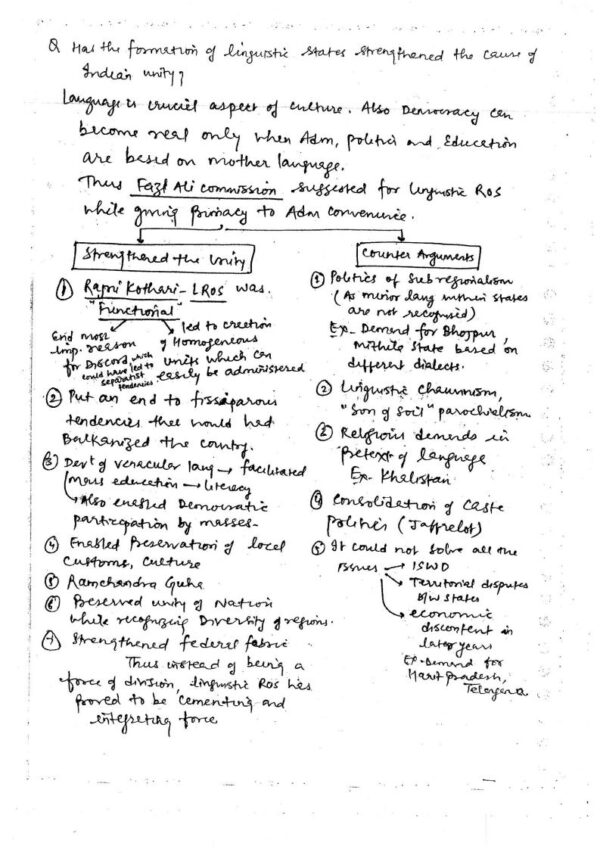 Q Has the formation of linguistic states strengthened the cause of
Indian unity?
Language is crucial aspect of culture. Also Democracy can
become real only when Adm, politics and Education
are based on mother language.
Thus Fazl Ali commission suggested for linguistic ROS
while giving primacy to Adm convenience.
Strengthened the Unity
① Rajni Kothari - LROS was
"Functional"
End most
imp. reason
for Discord which
could have led to
separatist
tendencies
led to creation
of Homogeneous
units which can
easily be administered
② Put an end to fissiparous
tendencies that would had
Balkanized the country.
③ Devt of veracular lang → facilitated
mass education → literacy
Also enabled Democratic
participation by masses-
④ Enabled Preservation of local
customs, culture
⑤ Ramchandra Guha
⑥ Preserved unity of Nation
while recognizing Diversity of regions.
⑦ Strengthened federal fabric
Thus instead of being a
force of division, linguistic ROS has
proved to be cementing and
integrating force
Counter Arguments
① Politics of Subregionalism
(As minor lang within states
are not recognised)
Ex- Demand for Bhojpur,
Mithila State based on
different dialects.
② Linguistic chauvinism,
"Son of Soil" parochialism
② Religious demands in
pretext of language
Ex- Khalistan
④ Consolidation of caste
politics (Jaffrelot)
⑤ It could not solve all the
issues → ISWD
→ Territorial disputes
b/w states
→ economic
discontent in
later years
Ex-Demand for
Harit pradesh,
Telangana